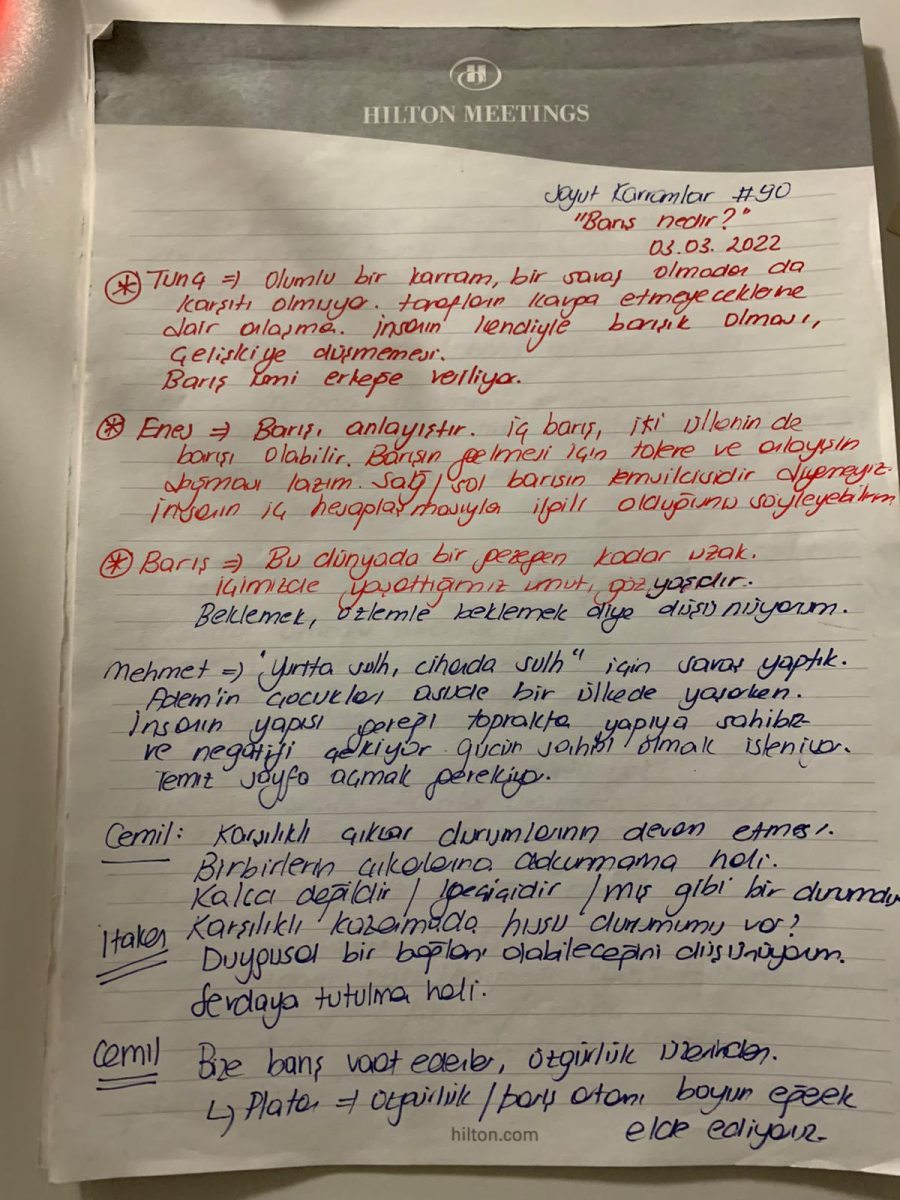 H
HILTON MEETINGS
Soyut Kavramlar #90
"Barış nedir?"
03.03.2022
* Tunç => Olumlu bir kavram, bir savaş olmadan da
karşıtı olmuyor. tarafların kavga etmeyeceklerine
dair anlaşma. insanın kendiyle barışık olması,
Çelişkiye düşmemesi.
Barış ismi erkeğe veriliyor.
* Enes => Barışı anlayıştır. iç barış, iki ülkenin de
barışı olabilir. Barışın gelmesi için tolere ve anlayışın
olması lazım. Sağ/sol barışın temsilcisidir diyemeyiz.
insanın iç hesaplaşmasıyla ilgili olduğunu söyleyebilirim
* Barış => Bu dünyada bir gezegen kadar uzak.
içimizde yaşattığımız umut, göz yaşıdır.
Beklemek, özlemle beklemek diye düşünüyorum.
Mehmet => "Yurtta sulh, cihanda sulh" için savaş yaptık.
Adem'in çocukları asude bir ülkede yaşarken.
İnsanın yapısı gereği toprakta yapıya sahibiz
ve negatifi çekiyor gücün sahibi olmak isteniyor.
Temiz sayfa açmak gerekiyor.
Cemil: Karşılıklı çıkar durumlarının devam etmesi.
Birbirlerin çıkarlarına dokunmama hali.
Kalıcı değildir / geçicidir / mış gibi bir durumdur
Karşılıklı kazanmada husu durumumu var?
İtaker Duygusal bir bağlamı olabileceğini düşünüyorum.
Sevdaya tutulma hali.
Cemil Bize barış vaat ederler, özgürlük üzerinden.
↳ Platon => özgürlük / barış ortamı boyun eğerek
elde ediyoruz.
hilton.com